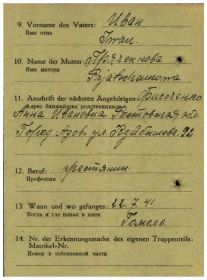 9. Vorname des Vaters: Иван
Имя отца
10. Name der Mutter:
Имя матери
11. Anschrift der nächsten Angehörigen:
Адрес ближайших родственников:
Анна Ивановна Ростовская
Город Азов. ул Куйбышова. 92
12. Beruf: крестянин
Профессия
13 Wann und wo gefangen: 22.7.41
Когда и где попал в плен Гомель
14. Nr. der Erkennungsmarke des eigenen Truppenteils:
Matrikel-Nr.
Номер в собственной части